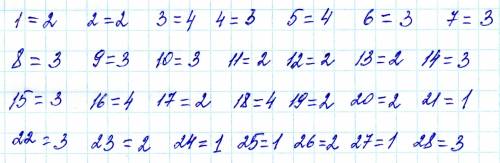 1=2 2=2 3=4 4=3 5=4 6=3 7=3
8=3 9=3 10=3 11=2 12=2 13=2 14=3
15=3 16=4 17=2 18=4 19=2 20=2 21=1
22=3 23=2 24=1 25=1 26=2 27=1 28=3